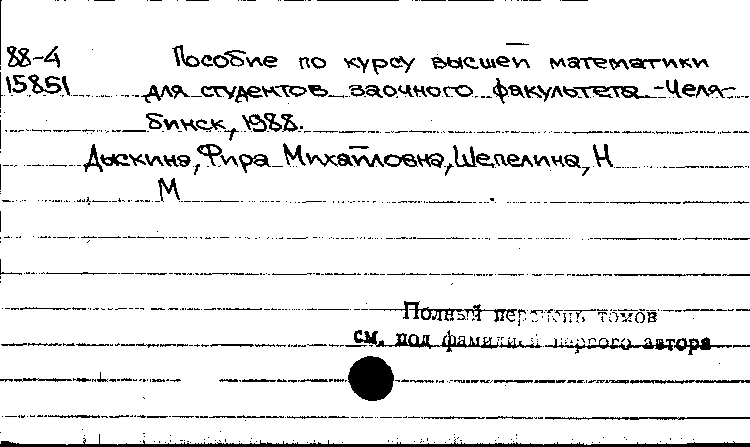 88-4 Пособие по курсу высшей математики
15851 для студентов заочного факультета.-Челя-
бинск, 1988.
Дыскина, Фира Михайловна, Шепелина, Н
М
Полный перечень томов
см. под фамилией первого автора